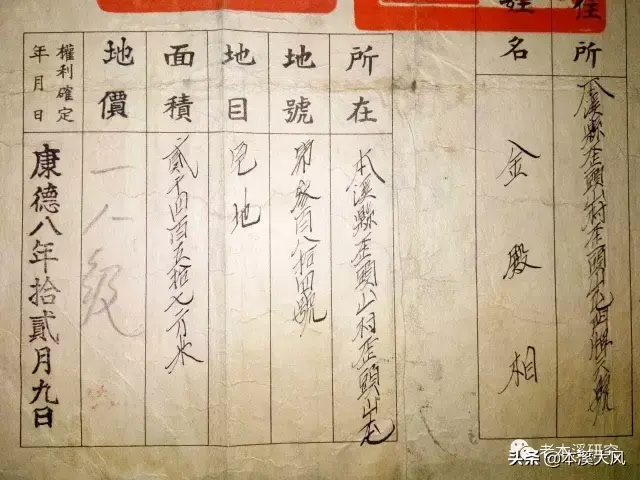 住所
本溪縣歪頭山村歪頭山屯牌六號
姓名
金殿相
所在
本溪縣歪頭山村歪頭山屯
地號
第叄百八拾四號
地目
宅地
面積
貳千四百五拾七方米
地價
一八級
權利確定
年月日
康德八年拾貳月九日
老本溪研究
头条 @本溪大风